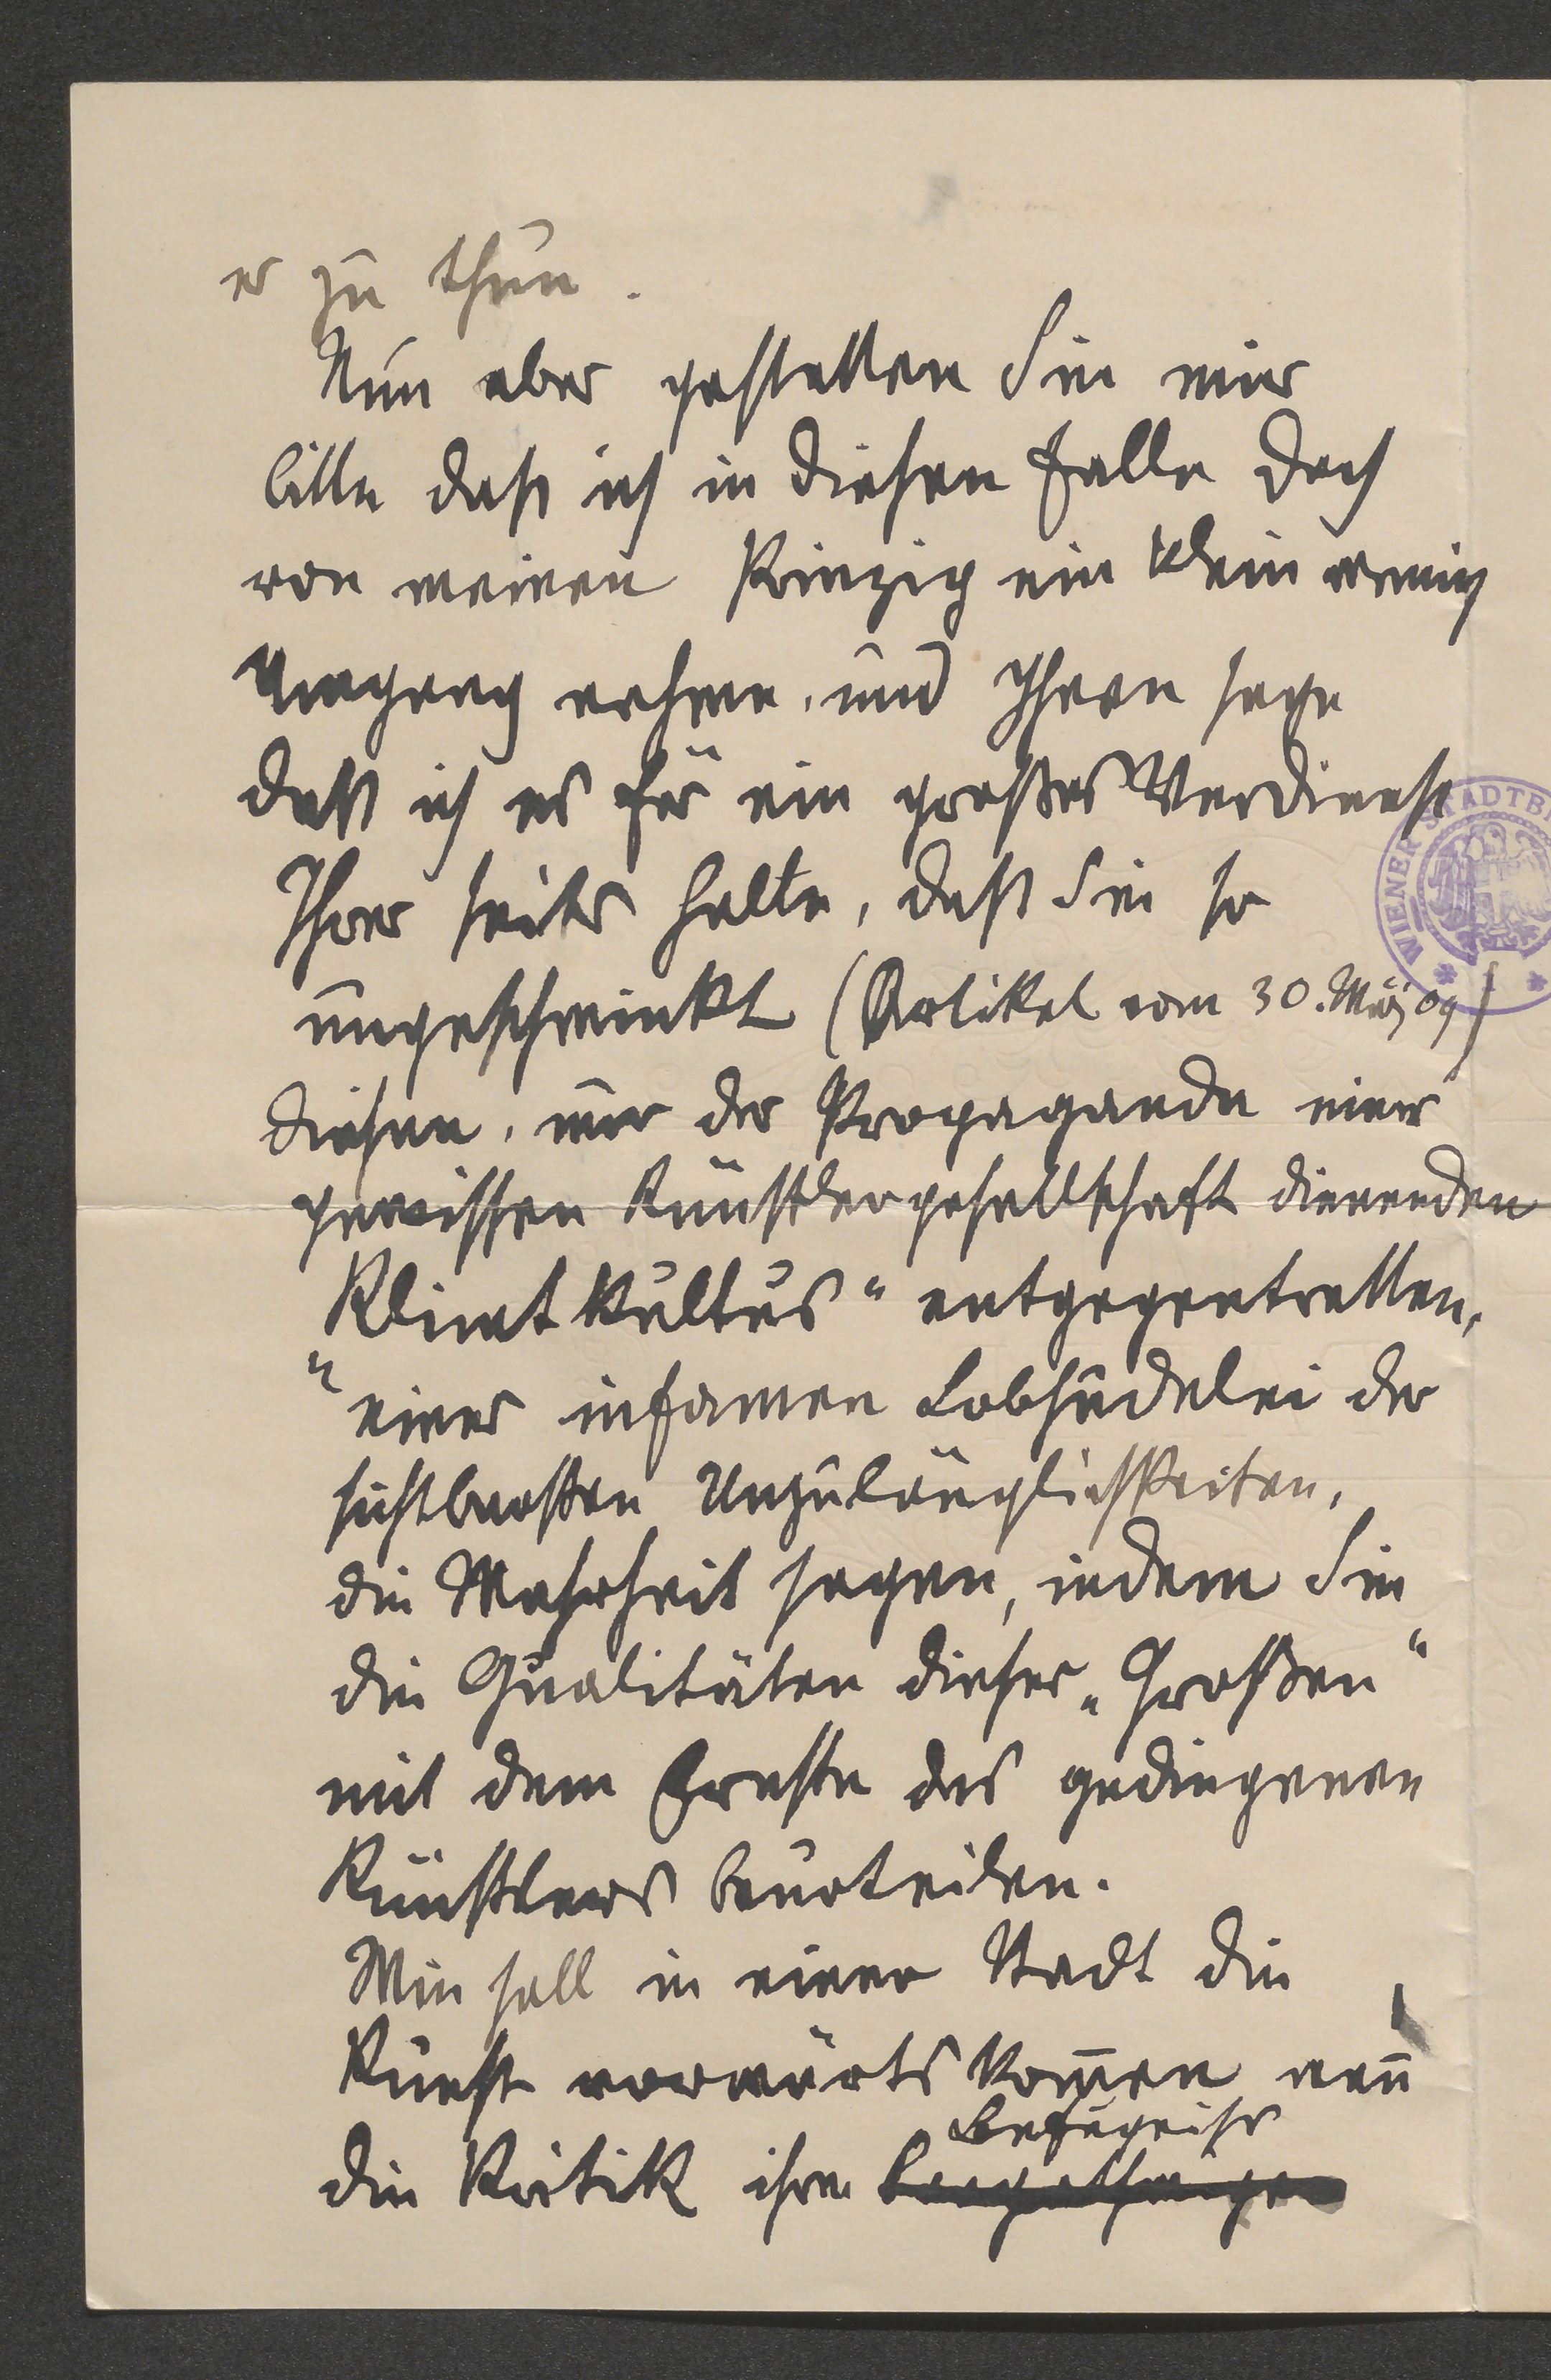 er zu thun.
Nun aber gestatten Sie mir
bitte daß ich in diesen Falle doch
von meinen Prinzip ein klein wenig
Umgang nehme, und Ihnen sage
daß ich es für ein großes Verdienst
Ihrer seits halte, daß Sie so
ungeschminkt (Artikel vom 30. März 09)
diesen, nur der Propaganda einer
gewissen Künstlergesellschaft dienenden
Klimt kultus" entgegentretten,
"einer infamen Lobhudelei der
sichtbarsten Unzulänglichkeiten,
die Wahrheit sagen, indem Sie
die Qualitäten dieser „Großen"
mit dem Ernste des gediegenen
Künstlers beurteilen.
Wie soll in einer Stadt die
Kunst vorwärts kom̅en wen̅
Befugniße
die Kritik ihre
WIENER STADTB